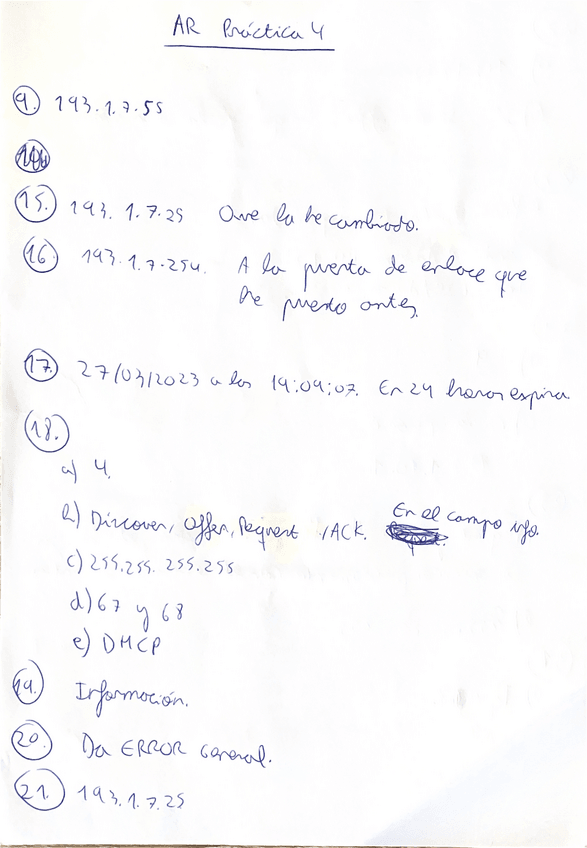 AR Práctica 4
9. 193.1.7.55
15. 193.1.7.25 Que la he cambiado.
16. 193.1.7.254. A la puerta de enlace que
he puesto antes.
17. 27/03/2023 a las 19:09:07. En 24 horas espira.
18.
a) 4.
b) Discover, Offer, Request, ACK. En el campo info.
c) 255.255.255.255
d) 67 y 68
e) DHCP
19. Información.
20. Da ERROR General.
21. 193.1.7.25